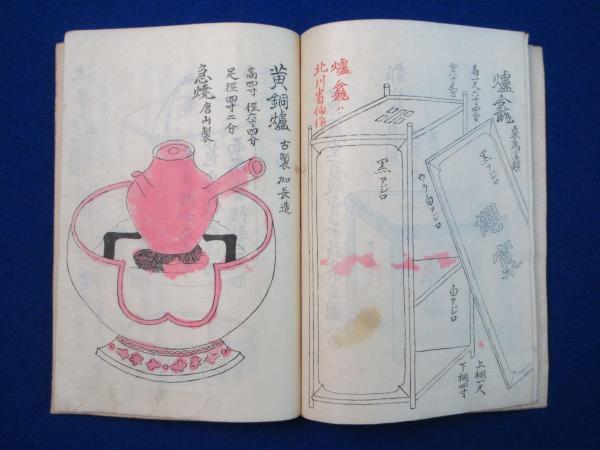 爐龕
高一尺六寸四分
黒アジロ
ウラ白アジロ
白アジロ
上棚一尺
下棚四寸
黒アジロ
爐龕ハ
北川省伯作
黄銅爐
古製 加長造
高四寸 徑六寸四分
足徑四寸二分
急焼
唐山製